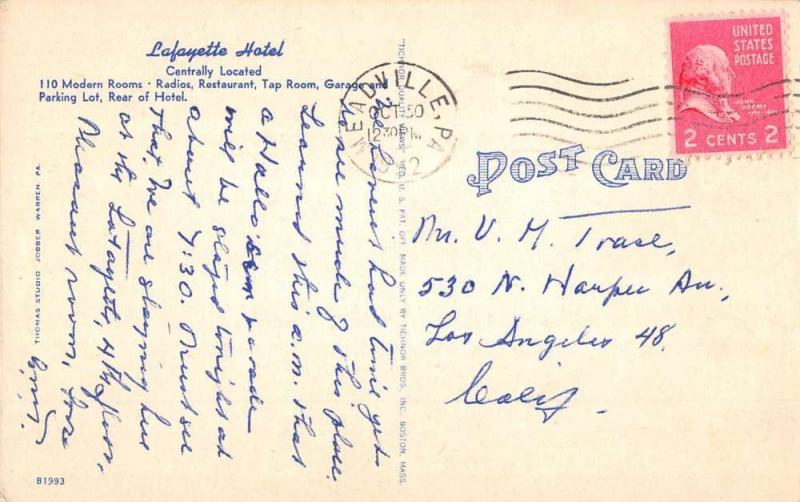 Lafayette Hotel
Centrally Located
110 Modern Rooms · Radios, Restaurant, Tap Room, Garage and
Parking Lot, Rear of Hotel.
haven't had time yet
to see much of this place.
Learned this a.m. that
a Hallo'een parade
will be staged tonight at
about 7:30. Must see
that. We are staying here
at the Lafayette, 4th floor.
Pleasant room, Love
THOMAS STUDIO JOBBER WARREN, PA.
81993
"TICHNOR QUALITY VIEWS," REG. U. S. PAT. OFF. MADE ONLY BY TICHNOR BROS., INC., BOSTON, MASS.
MEADVILLE, PA.
OCT 30
12 30 PM
POST CARD
UNITED
STATES
POSTAGE
JOHN
ADAMS
2 CENTS 2
Mr. V. M. Trace,
530 N. Harper Av.,
Los Angeles 48.
Calif.